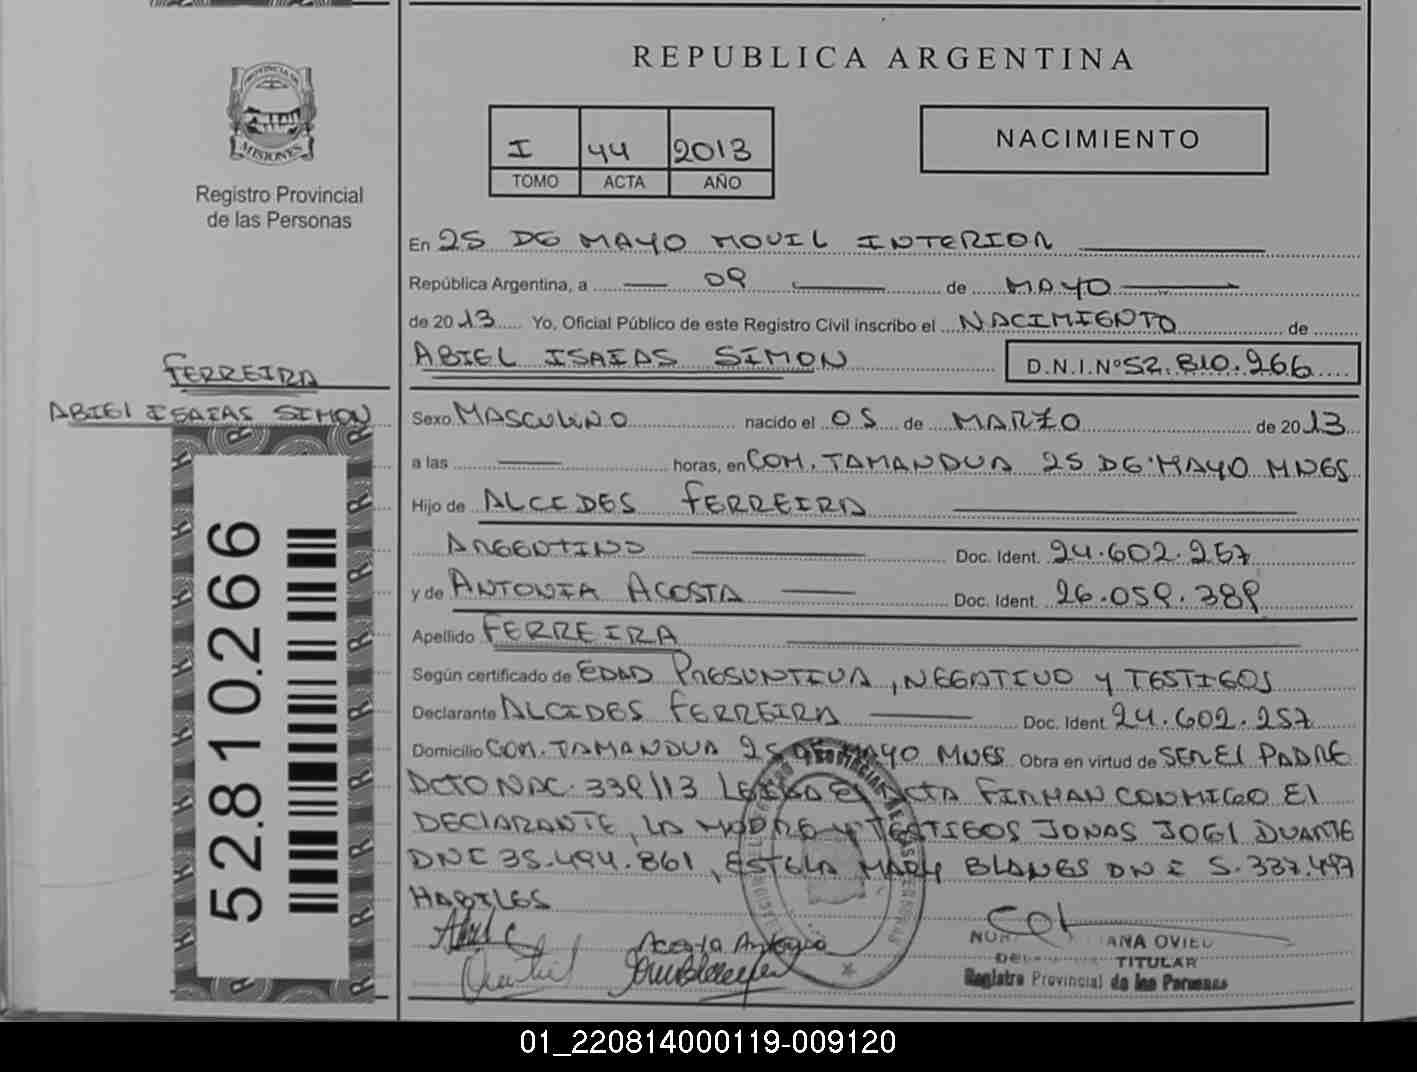 PROVINCIA DE
MISIONES
Registro Provincial
de las Personas
FERREIRA
ABIEL ISAIAS SIMON
52.810.266
REPUBLICA ARGENTINA
I 44 2013
TOMO ACTA AÑO
NACIMIENTO
En 25 DE MAYO MOVIL INTERIOR
República Argentina, a 09 de MAYO
de 2013 Yo, Oficial Público de este Registro Civil inscribo el NACIMIENTO de
ABIEL ISAIAS SIMON D.N.I.Nº 52.810.266
Sexo MASCULINO nacido el 05 de MARZO de 2013
a las horas, en COM. TAMANDUA 25 DE MAYO MNES
Hijo de ALCIDES FERREIRA
ARGENTINO Doc. Ident. 24.602.257
y de ANTONIA ACOSTA Doc. Ident. 26.059.389
Apellido FERREIRA
Según certificado de EDAD PRESUNTIVA, NEGATIVO y TESTIGOS
Declarante ALCIDES FERREIRA Doc. Ident. 24.602.257
Domicilio COM. TAMANDUA 25 DE MAYO MNES Obra en virtud de SER El PADRE
DCTO NAC. 339/13 LEIDA El ACTA FIRMAN CONMIGO El
DECLARANTE, LA MADRE y TESTIGOS JONAS JOEl DUARTE
DNI 35.494.861, ESTELA MARY BLANES DNI 5.337.497
HABILES
Acosta Antonia
ANA OVIED
TITULAR
Registro Provincial de las Personas
01_220814000119-009120